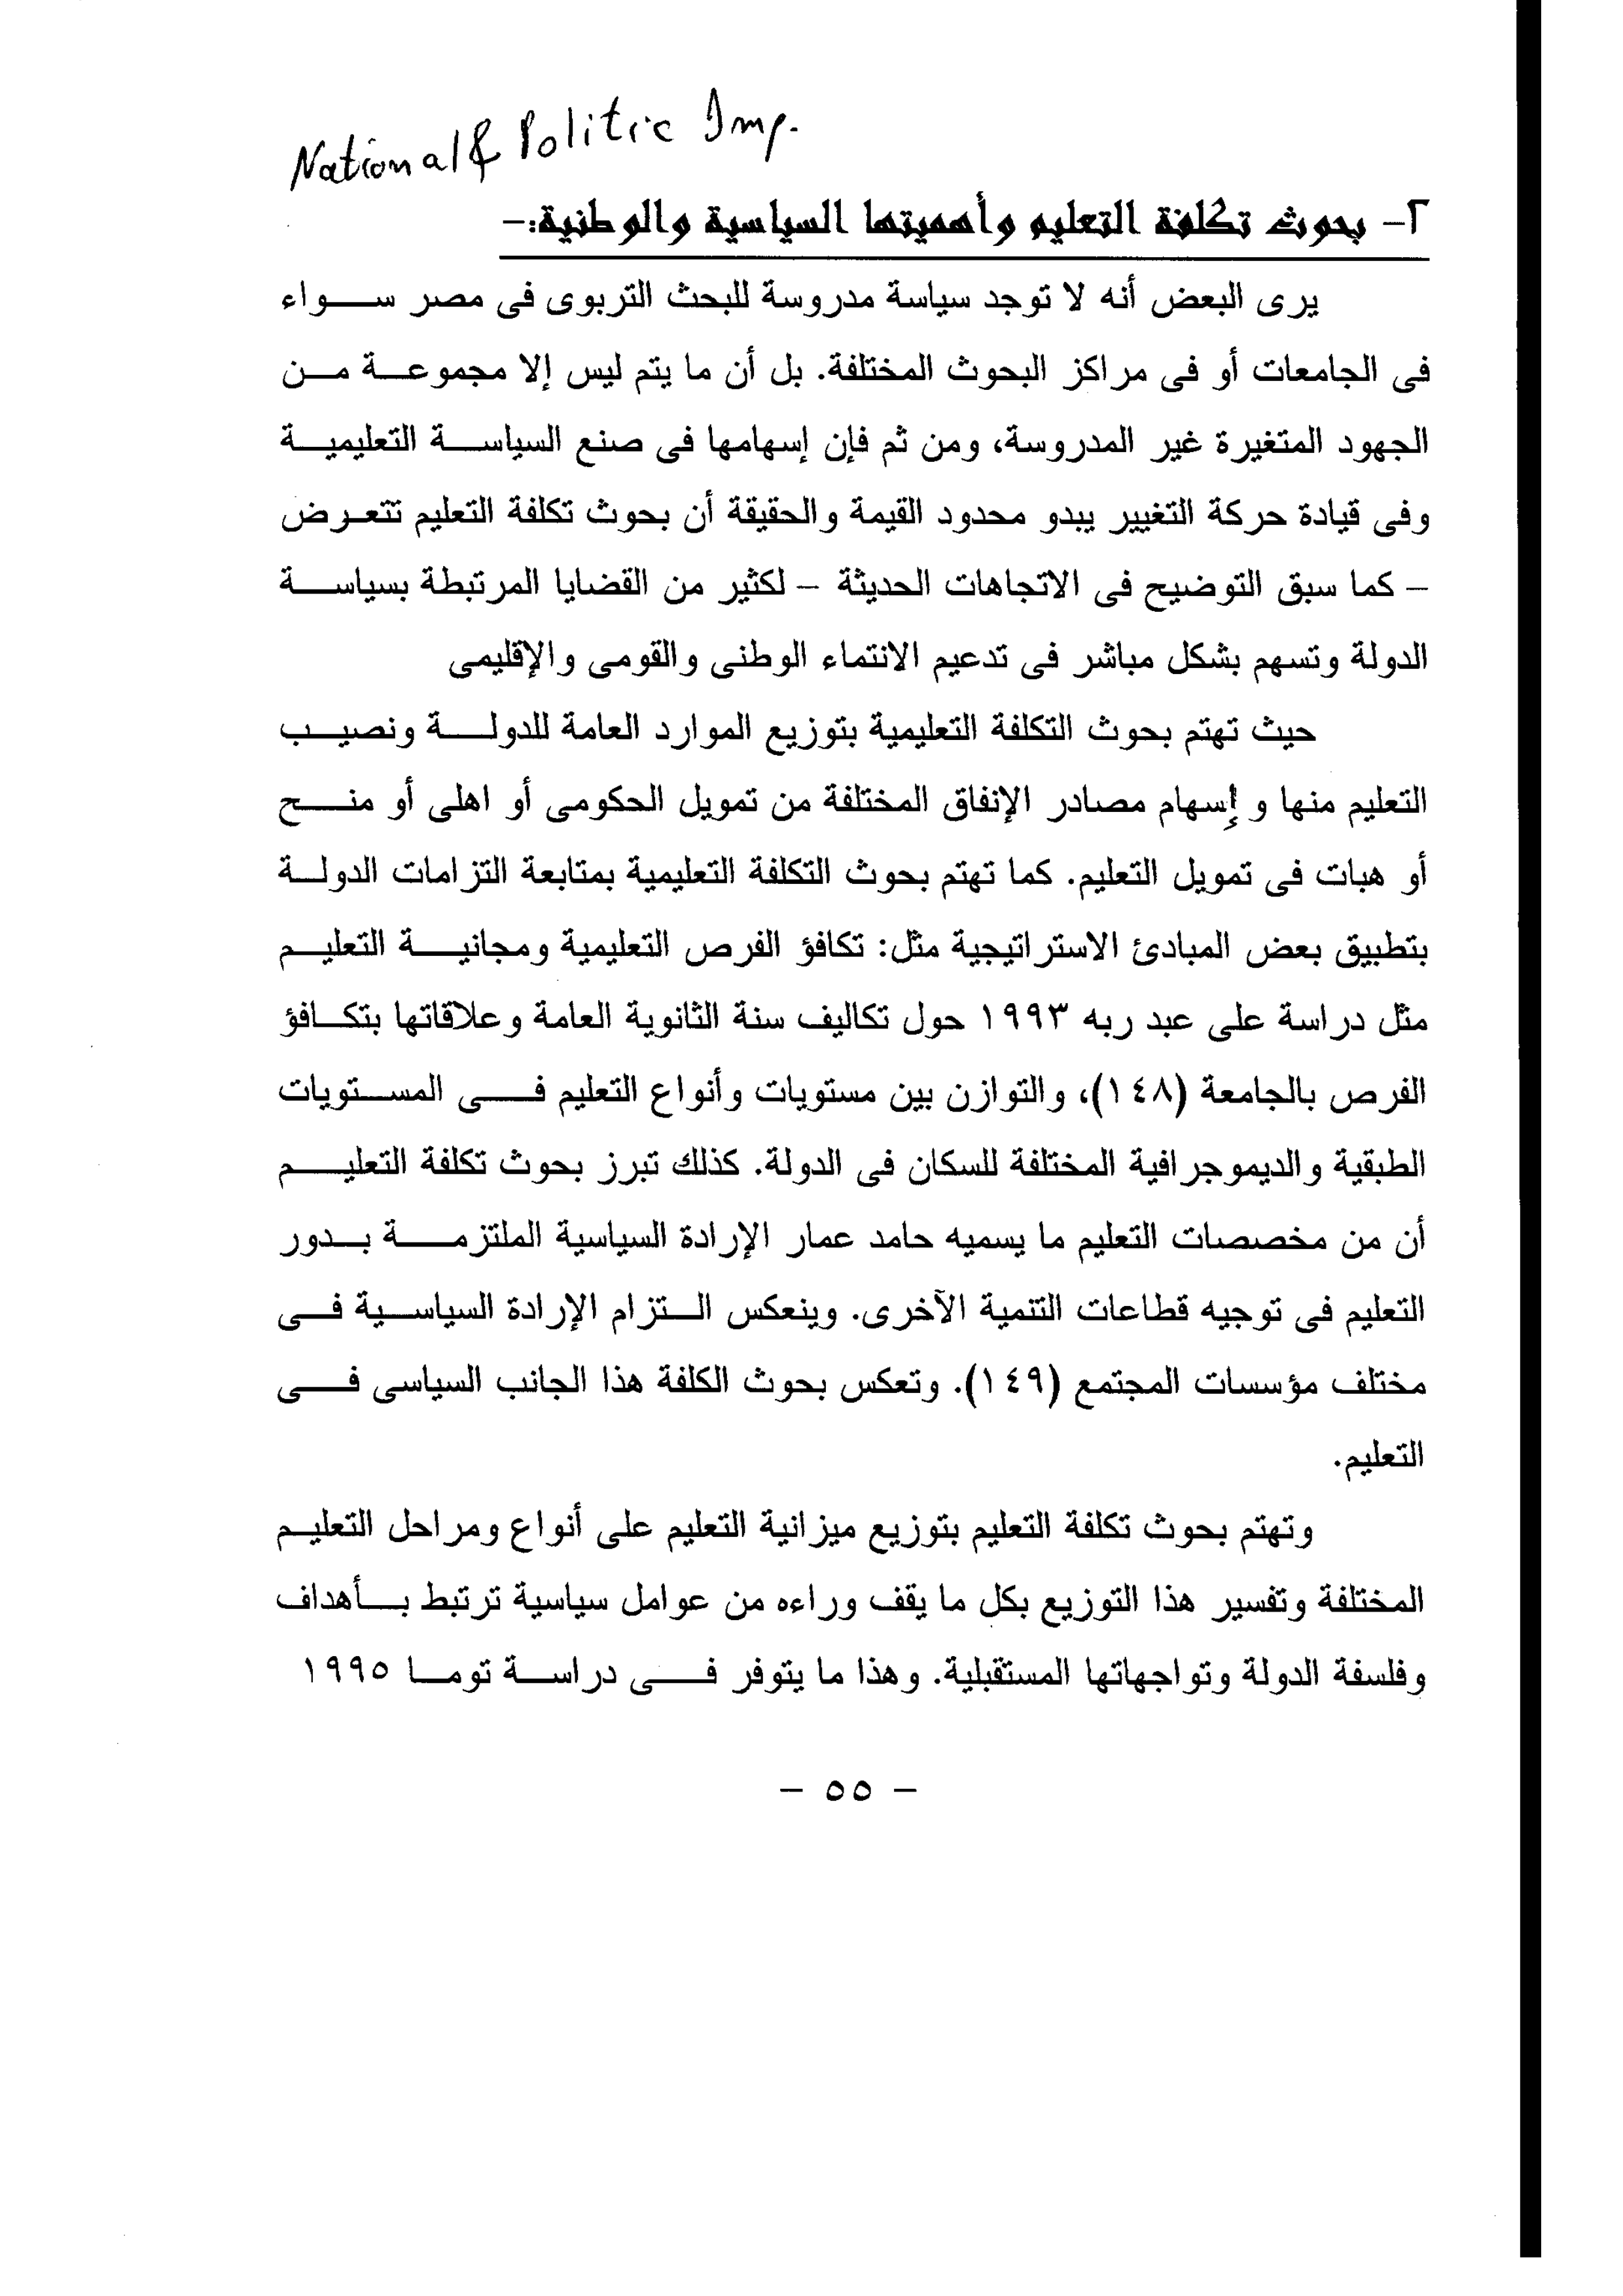 National & Politic Imp.
٢- بحوث تكلفة التعليم وأهميتها السياسية والوطنية:-
يرى البعض أنه لا توجد سياسة مدروسة للبحث التربوى فى مصر سواء
فى الجامعات أو فى مراكز البحوث المختلفة. بل أن ما يتم ليس إلا مجموعة من
الجهود المتغيرة غير المدروسة، ومن ثم فإن إسهامها فى صنع السياسة التعليمية
وفى قيادة حركة التغيير يبدو محدود القيمة والحقيقة أن بحوث تكلفة التعليم تتعرض
– كما سبق التوضيح فى الاتجاهات الحديثة – لكثير من القضايا المرتبطة بسياسة
الدولة وتسهم بشكل مباشر فى تدعيم الانتماء الوطنى والقومى والإقليمى
حيث تهتم بحوث التكلفة التعليمية بتوزيع الموارد العامة للدولة ونصيب
التعليم منها و إسهام مصادر الإنفاق المختلفة من تمويل الحكومى أو اهلى أو منح
أو هبات فى تمويل التعليم. كما تهتم بحوث التكلفة التعليمية بمتابعة التزامات الدولة
بتطبيق بعض المبادئ الاستراتيجية مثل: تكافؤ الفرص التعليمية ومجانية التعليم
مثل دراسة على عبد ربه ١٩٩٣ حول تكاليف سنة الثانوية العامة وعلاقاتها بتكافؤ
الفرص بالجامعة (١٤٨)، والتوازن بين مستويات وأنواع التعليم فى المستويات
الطبقية والديموجرافية المختلفة للسكان فى الدولة. كذلك تبرز بحوث تكلفة التعليم
أن من مخصصات التعليم ما يسميه حامد عمار الإرادة السياسية الملتزمة بدور
التعليم فى توجيه قطاعات التنمية الآخرى. وينعكس التزام الإرادة السياسية فى
مختلف مؤسسات المجتمع (١٤٩). وتعكس بحوث الكلفة هذا الجانب السياسى فى
التعليم.
وتهتم بحوث تكلفة التعليم بتوزيع ميزانية التعليم على أنواع ومراحل التعليم
المختلفة وتفسير هذا التوزيع بكل ما يقف وراءه من عوامل سياسية ترتبط بأهداف
وفلسفة الدولة وتواجهاتها المستقبلية. وهذا ما يتوفر فى دراسة توما ١٩٩٥
– ٥٥ –